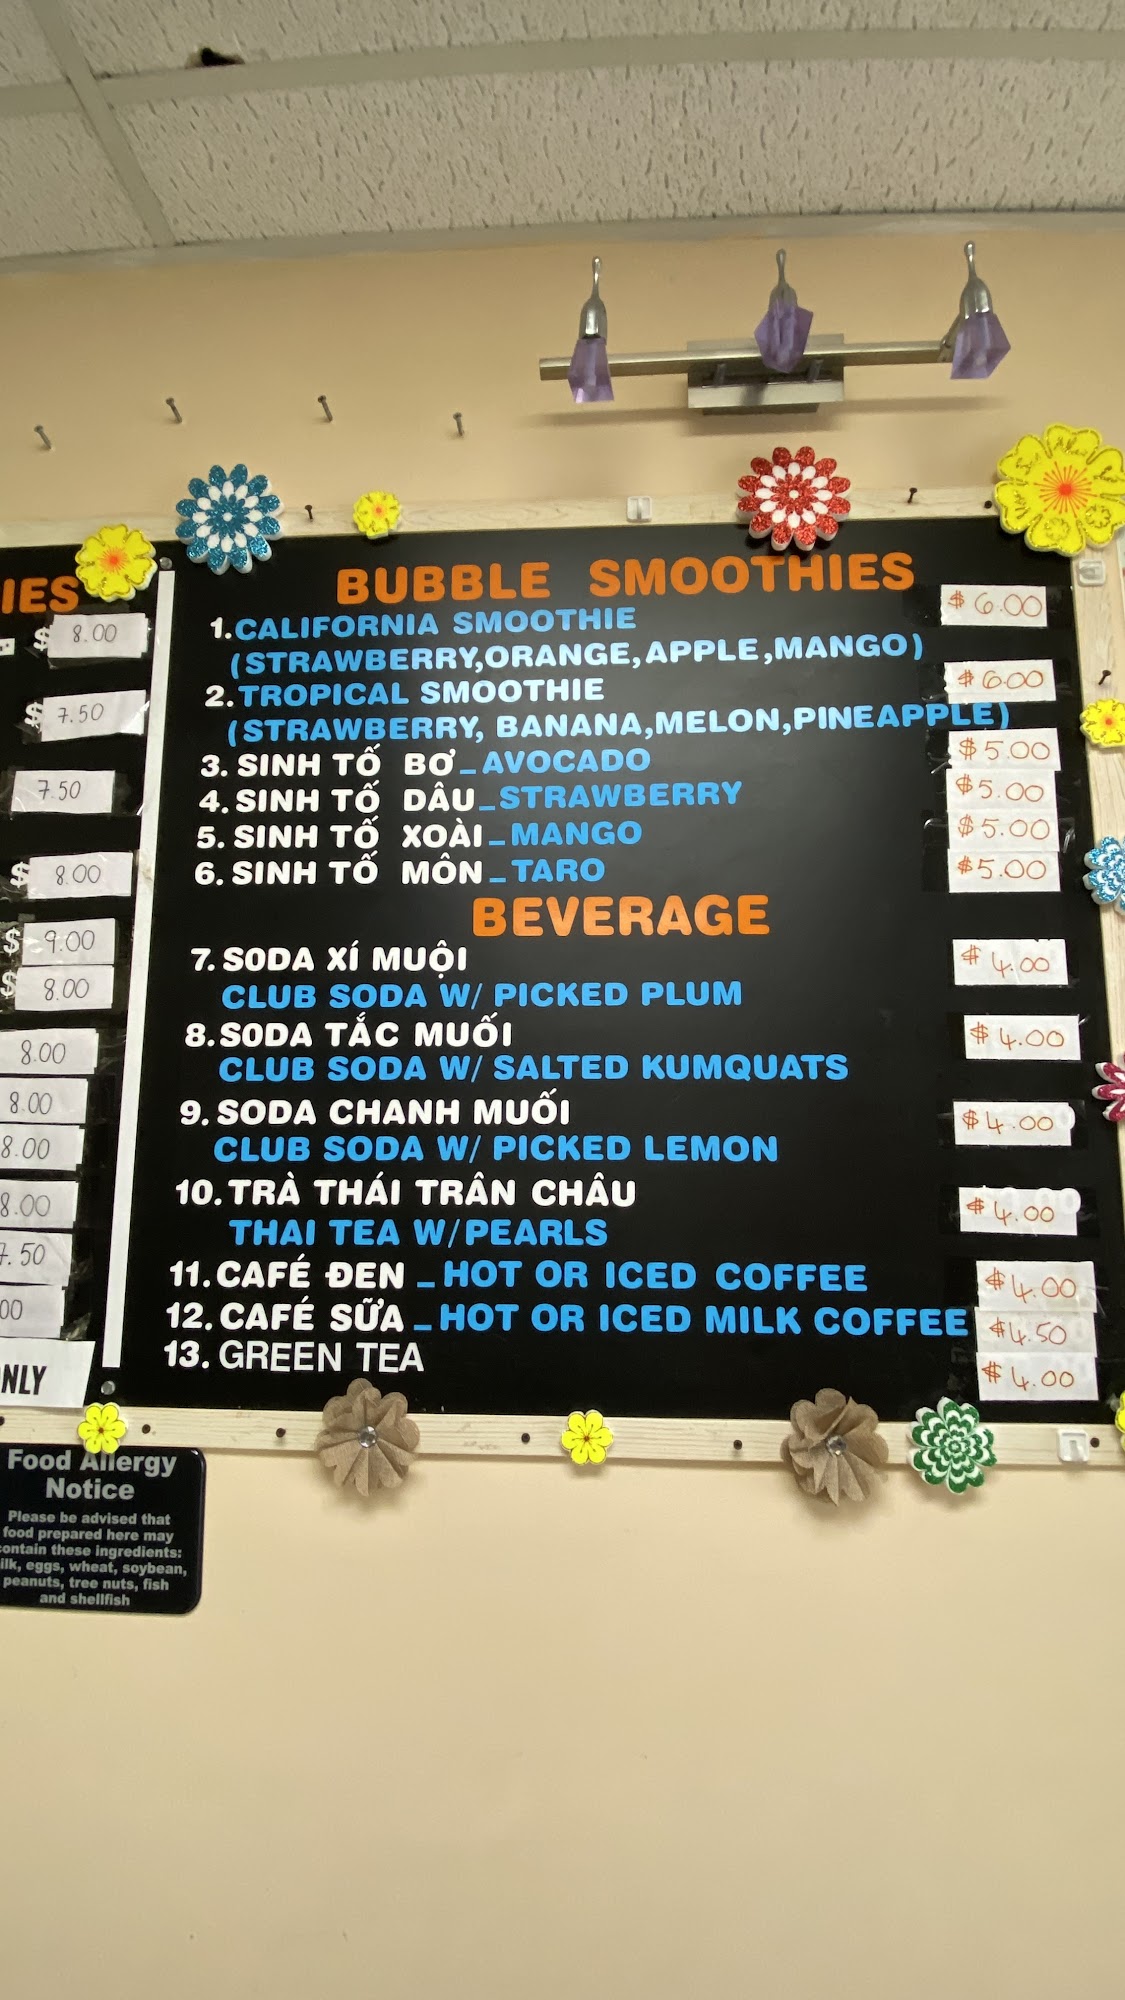 IES
$ 8.00
$ 7.50
7.50
$ 8.00
$ 9.00
$ 8.00
8.00
8.00
8.00
8.00
7.50
00
NLY
BUBBLE SMOOTHIES
1. CALIFORNIA SMOOTHIE $6.00
(STRAWBERRY,ORANGE,APPLE,MANGO)
2. TROPICAL SMOOTHIE $6.00
(STRAWBERRY, BANANA,MELON,PINEAPPLE)
3. SINH TỐ BƠ_AVOCADO $5.00
4. SINH TỐ DÂU_STRAWBERRY $5.00
5. SINH TỐ XOÀI_MANGO $5.00
6. SINH TỐ MÔN_TARO $5.00
BEVERAGE
7. SODA XÍ MUỘI $4.00
CLUB SODA W/ PICKED PLUM
8. SODA TẮC MUỐI $4.00
CLUB SODA W/ SALTED KUMQUATS
9. SODA CHANH MUỐI $4.00
CLUB SODA W/ PICKED LEMON
10. TRÀ THÁI TRÂN CHÂU $4.00
THAI TEA W/PEARLS
11. CAFÉ ĐEN _ HOT OR ICED COFFEE $4.00
12. CAFÉ SỮA _ HOT OR ICED MILK COFFEE $4.50
13. GREEN TEA $4.00
Food Allergy
Notice
Please be advised that
food prepared here may
contain these ingredients:
ilk, eggs, wheat, soybean,
peanuts, tree nuts, fish
and shellfish